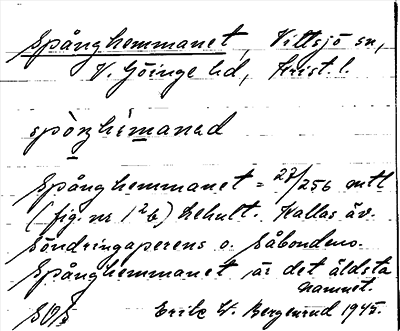 Spånghemmanet, Vittsjö sn,
V. Göinge hd, Krist. l.
spò̱ŋhèmanəd
Spånghemmanet = 27/256 mtl
(fig. nr 1²b) Hehult. Kallas äv.
Söndringaperens o. Såbondens.
Spånghemmanet är det äldsta
namnet.
SOS Erik W. Bergenrud 1945.